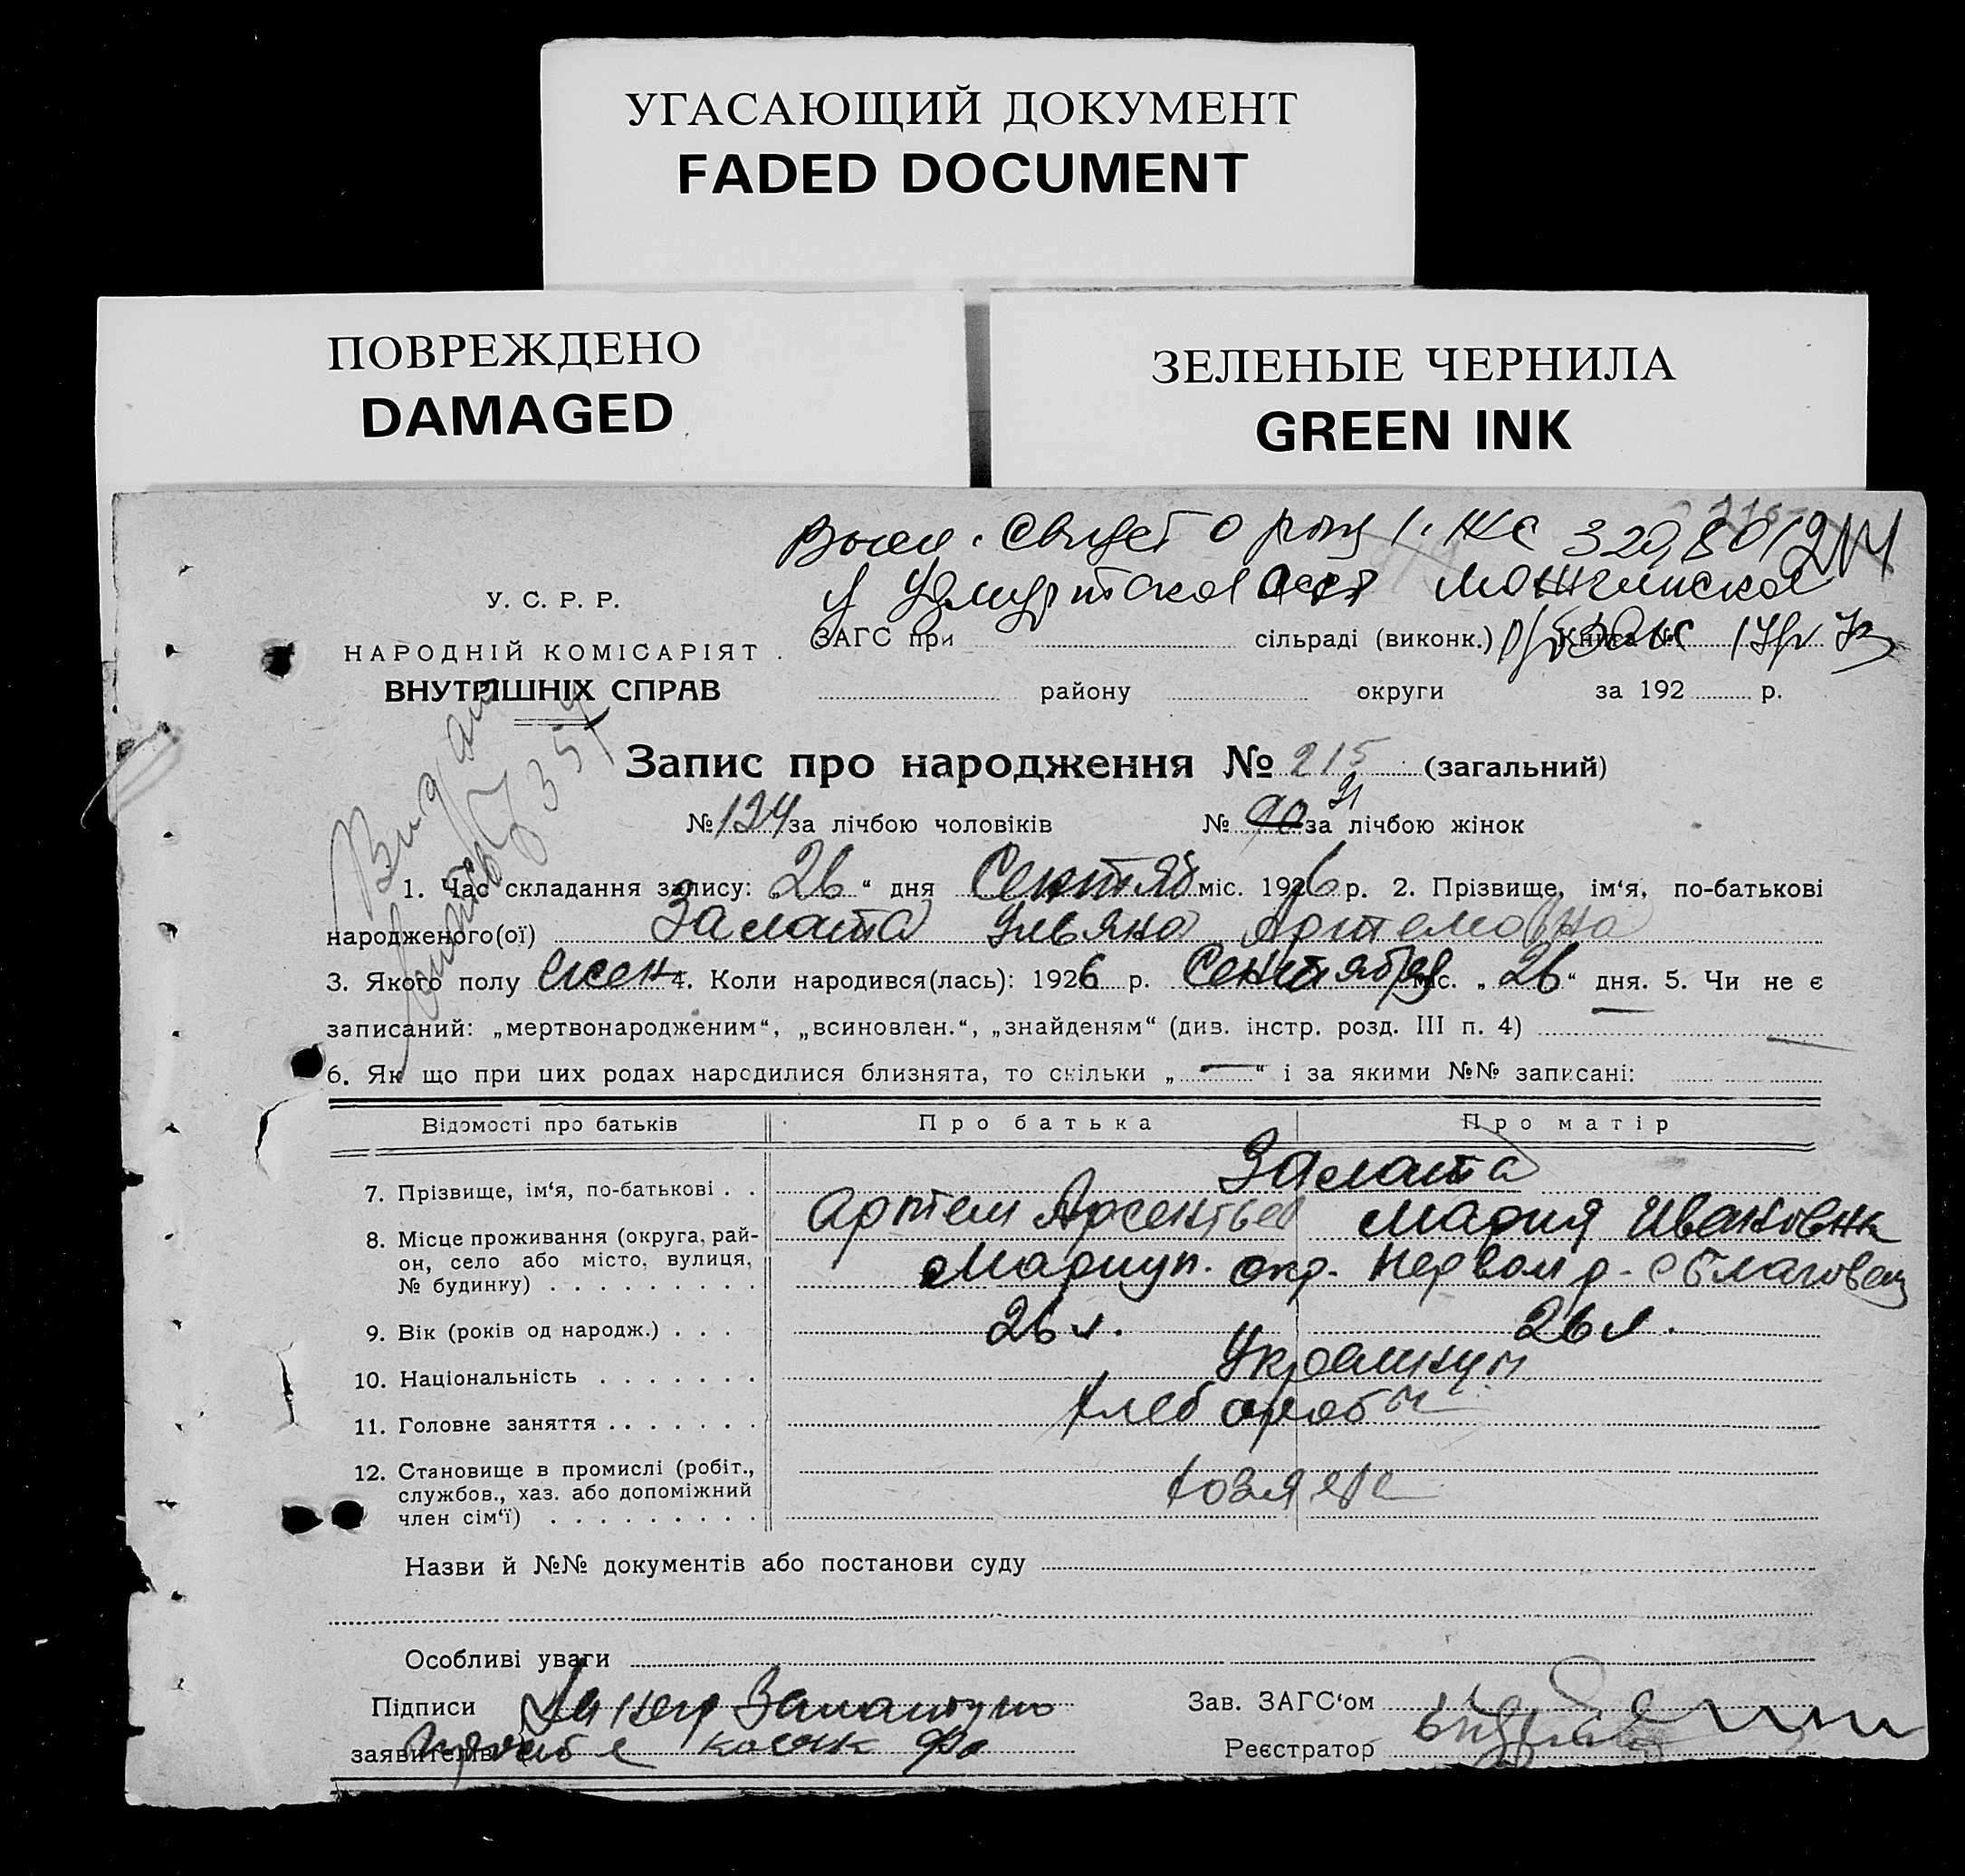 УГАСАЮЩИЙ ДОКУМЕНТ
FADED DOCUMENT
ПОВРЕЖДЕНО
DAMAGED
ЗЕЛЕНЫЕ ЧЕРНИЛА
GREEN INK
о 320,80
У. С. Р. Р.
НАРОДНІЙ КОМІСАРІЯТ
ВНУТРІШНІХ СПРАВ
ЗАГС при сільраді (виконк.) Книга №
району округи за 192 р.
Запис про народження № 215 (загальний)
№ 124 за лічбою чоловіків № 90 91 за лічбою жінок
1. Час складання запису: „26“ дня Сентяб міс. 1926 р. 2. Прізвище, ім‘я, по-батькові
народженого(ої) Замата Ульяна Артемовна
3. Якого полу жен 4. Коли народився(лась): 1926 р. Сентября міс. „26“ дня. 5. Чи не є
записаний: „мертвонародженим“, „всиновлен.“, „знайденям“ (див. інстр. розд. III п. 4)
6. Як що при цих родах народилися близнята, то скільки „—“ і за якими №№ записані:
Відомості про батьків Про батька Про матір
Замата
7. Прізвище, ім‘я, по-батькові . .
Артем Арсентьев Мария Ивановна
8. Місце проживання (округа, рай-
он, село або місто, вулиця,
№ будинку)
Мариуп. окр.
9. Вік (років од народж.) . . . 26 л. 26 л.
10. Національність Украинцы
11. Головне заняття Хлеборобы
12. Становище в промислі (робіт.,
службов., хаз. або допоміжний
член сім‘ї)
хозяева
Назви й №№ документів або постанови суду
Особливі уваги
Підписи
заявителів
Зав. ЗАГС‘ом
Реєстратор